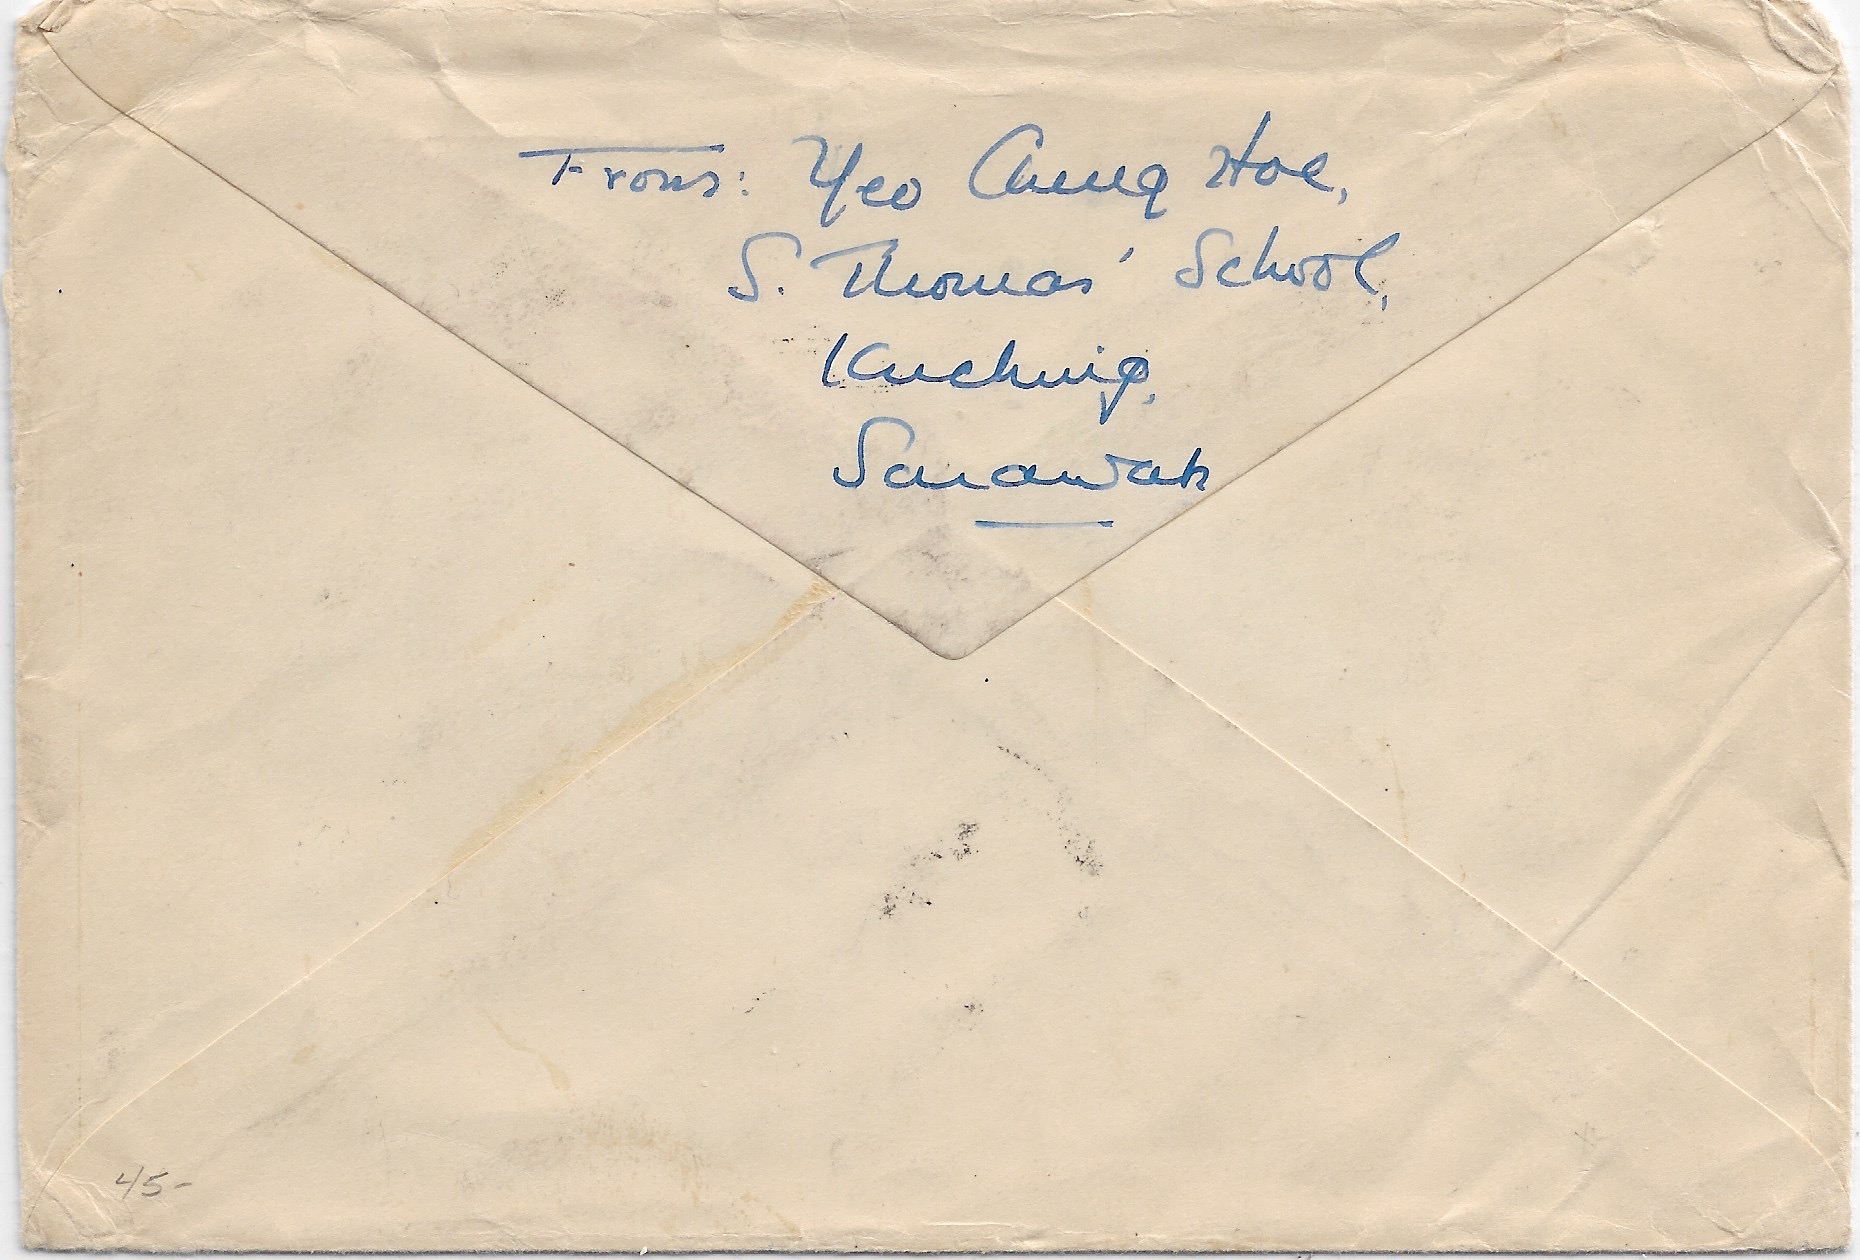 From: Yeo Cheng Hoe,
S. Thomas' School,
Kuching,
Sarawak
45-